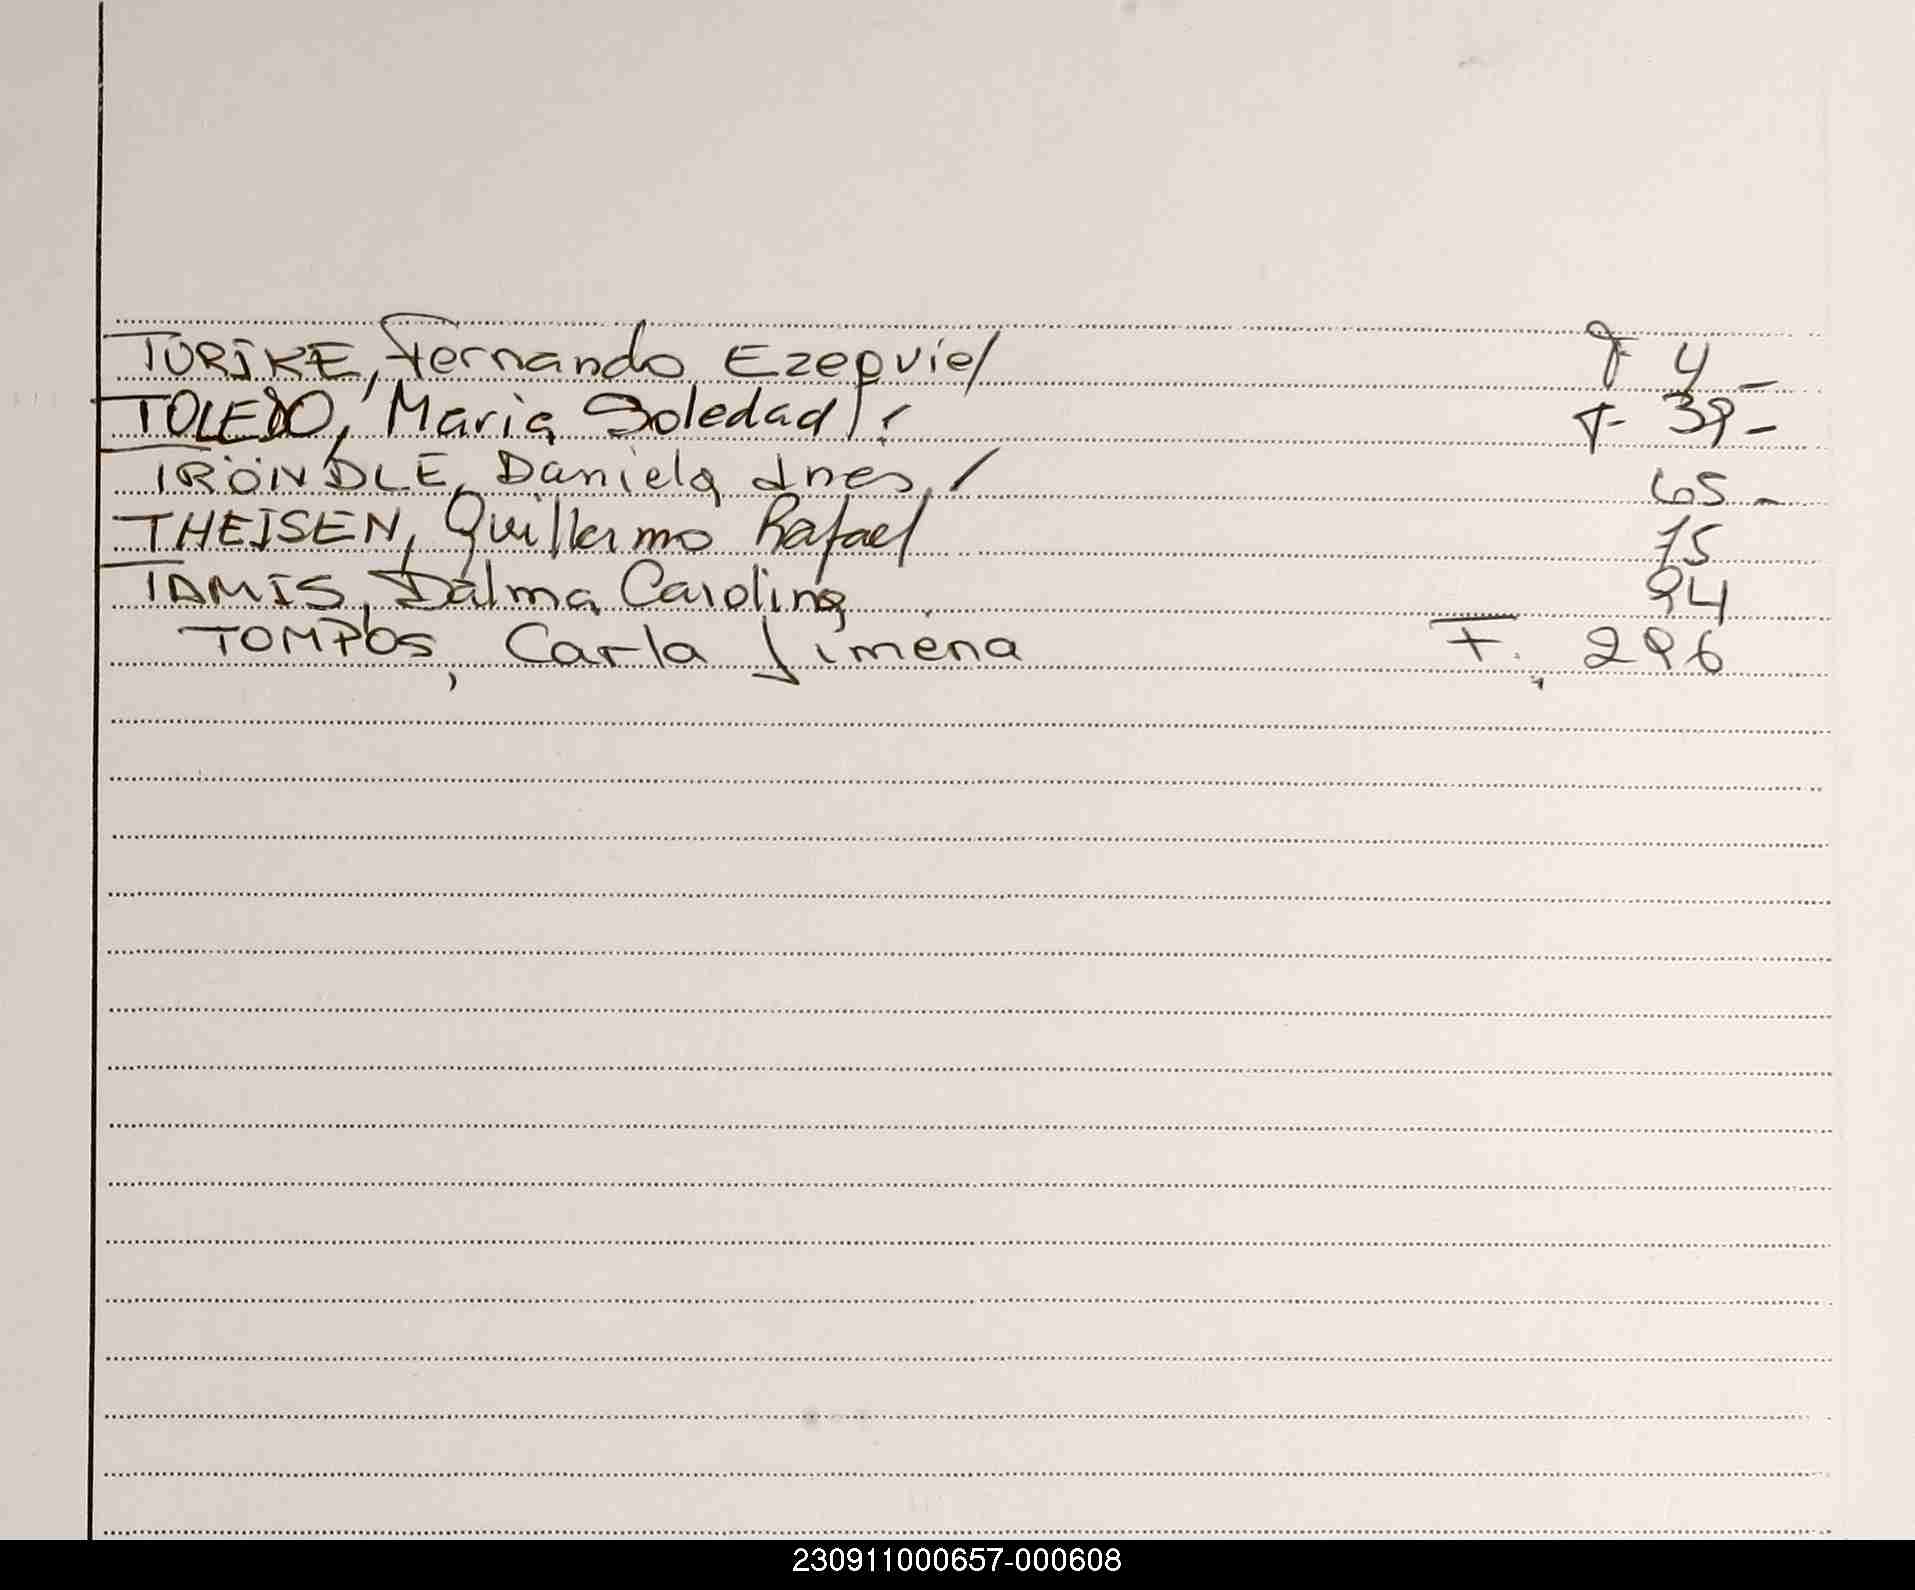 TURIKE, Fernando Ezequiel F 4 -
TOLEDO, Maria Soledad F- 39 -
TRÖNDLE, Daniela Ines 65 -
THEISEN, Guillermo Rafael 75
TAMIS, Dalma Carolina 94
TOMPOS, Carla Jimena F. 296
230911000657-000608